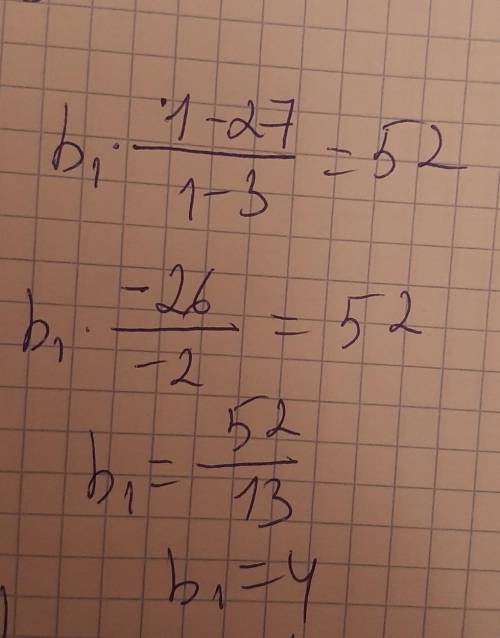 b₁ · (1-27)/(1-3) = 52
b₁ · (-26)/(-2) = 52
b₁ = 52/13
b₁ = 4